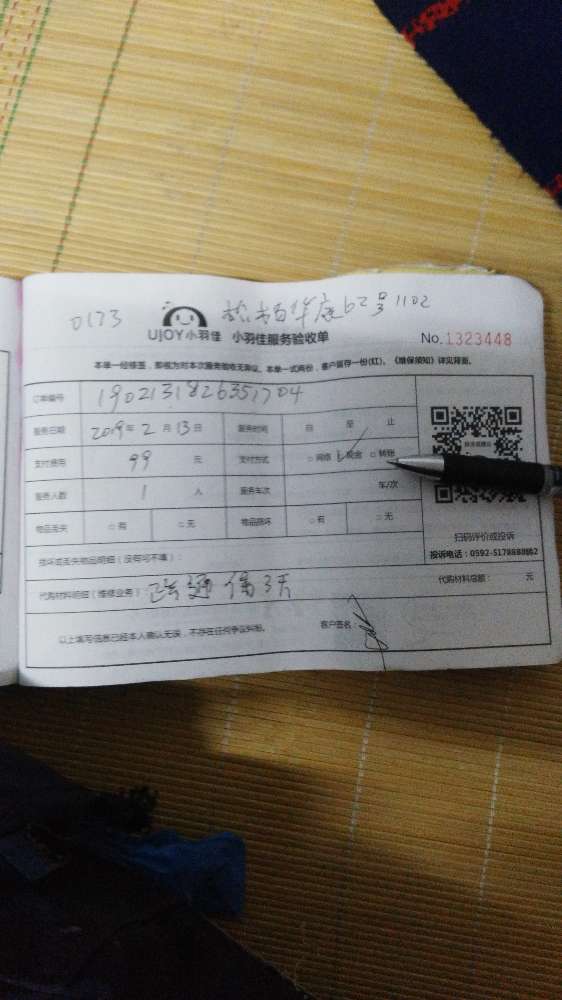 0173 松柏华庭62号1102
UJOY小羽佳 小羽佳服务验收单
No.1323448
本单一经修签，即视为对本次服务验收无异议。本单一式两份，客户留存一份(红)。《维保须知》详见背面。
订单编号 190213182635704
服务日期 2019年2月13日 服务时间 自 至 止
支付费用 99 元 支付方式 □网络 现金 □转账
服务人数 1 人 服务车次 车/次
物品丢失 □有 □无 物品损坏 □有 □无
扫码评价或投诉
投诉电话：0592-5178888862
损坏或丢失物品明细（没有可不填）：
代购材料明细（维修业务）： 疏通保3天 代购材料总额： 元
以上填写信息已经本人确认无误，不存在任何争议纠纷。 客户签名：